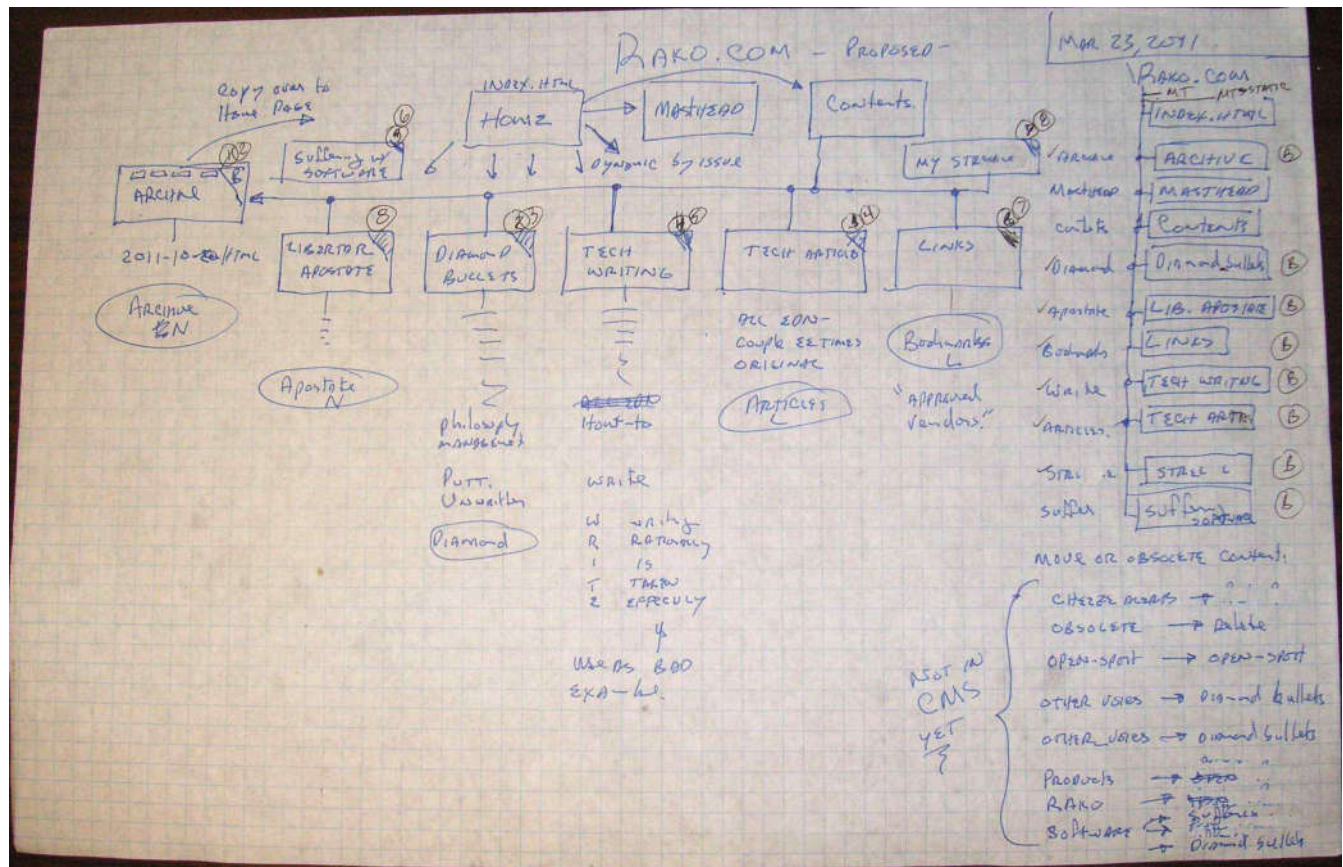 RAKO.COM - PROPOSED -
MAR 23, 2011
Copy over to
Home PAGE
INDEX.HTML
HOME
MASTHEAD
Contents
Dynamic by issue
Suffering w/
SOFTWARE
6
MY STRUGGLE
8
ARCHIVE
2011-10- HTML
Archive
N
8
LIBERTAR
APOSTATE
Apostate
N
3
DIAMOND
BULLETS
philosophy
MANAGEMENT
PUTT.
Unwritten
Diamond
5
TECH
WRITING
ALL EDN
How-to
write
W writing
R RATIONALLY
I IS
T TAKEN
E
Use AS BAD
4
TECH ARTICLE
ALL EDN-
Couple EETIMES
ORIGINAL
ARTICLES
L
7
LINKS
Bookmarks
L
"Approved
Vendors"
\RAKO.COM
MT MTSTATIC
INDEX.HTML
✓Archive ARCHIVE B
Masthead MASTHEAD
Contents Contents
✓Diamond Diamond bullets B
✓Apostate LIB. APOSTATE B
Bookmarks LINKS B
✓Write TECH WRITING B
✓ARTICLES. TECH B
B
Suffer Suffering SOFTWARE B
MOVE OR OBSOLETE Content.
NOT IN
CMS
YET
CHEEZE ALERTS →
OBSOLETE → Delete
OPEN-SPOT → OPEN-SPOT
OTHER VOICES → Diamond bullets
OTHER_VOICES → Diamond bullets
PRODUCTS →
RAKO →
SOFTWARE → Suffering
→ Diamond bullets